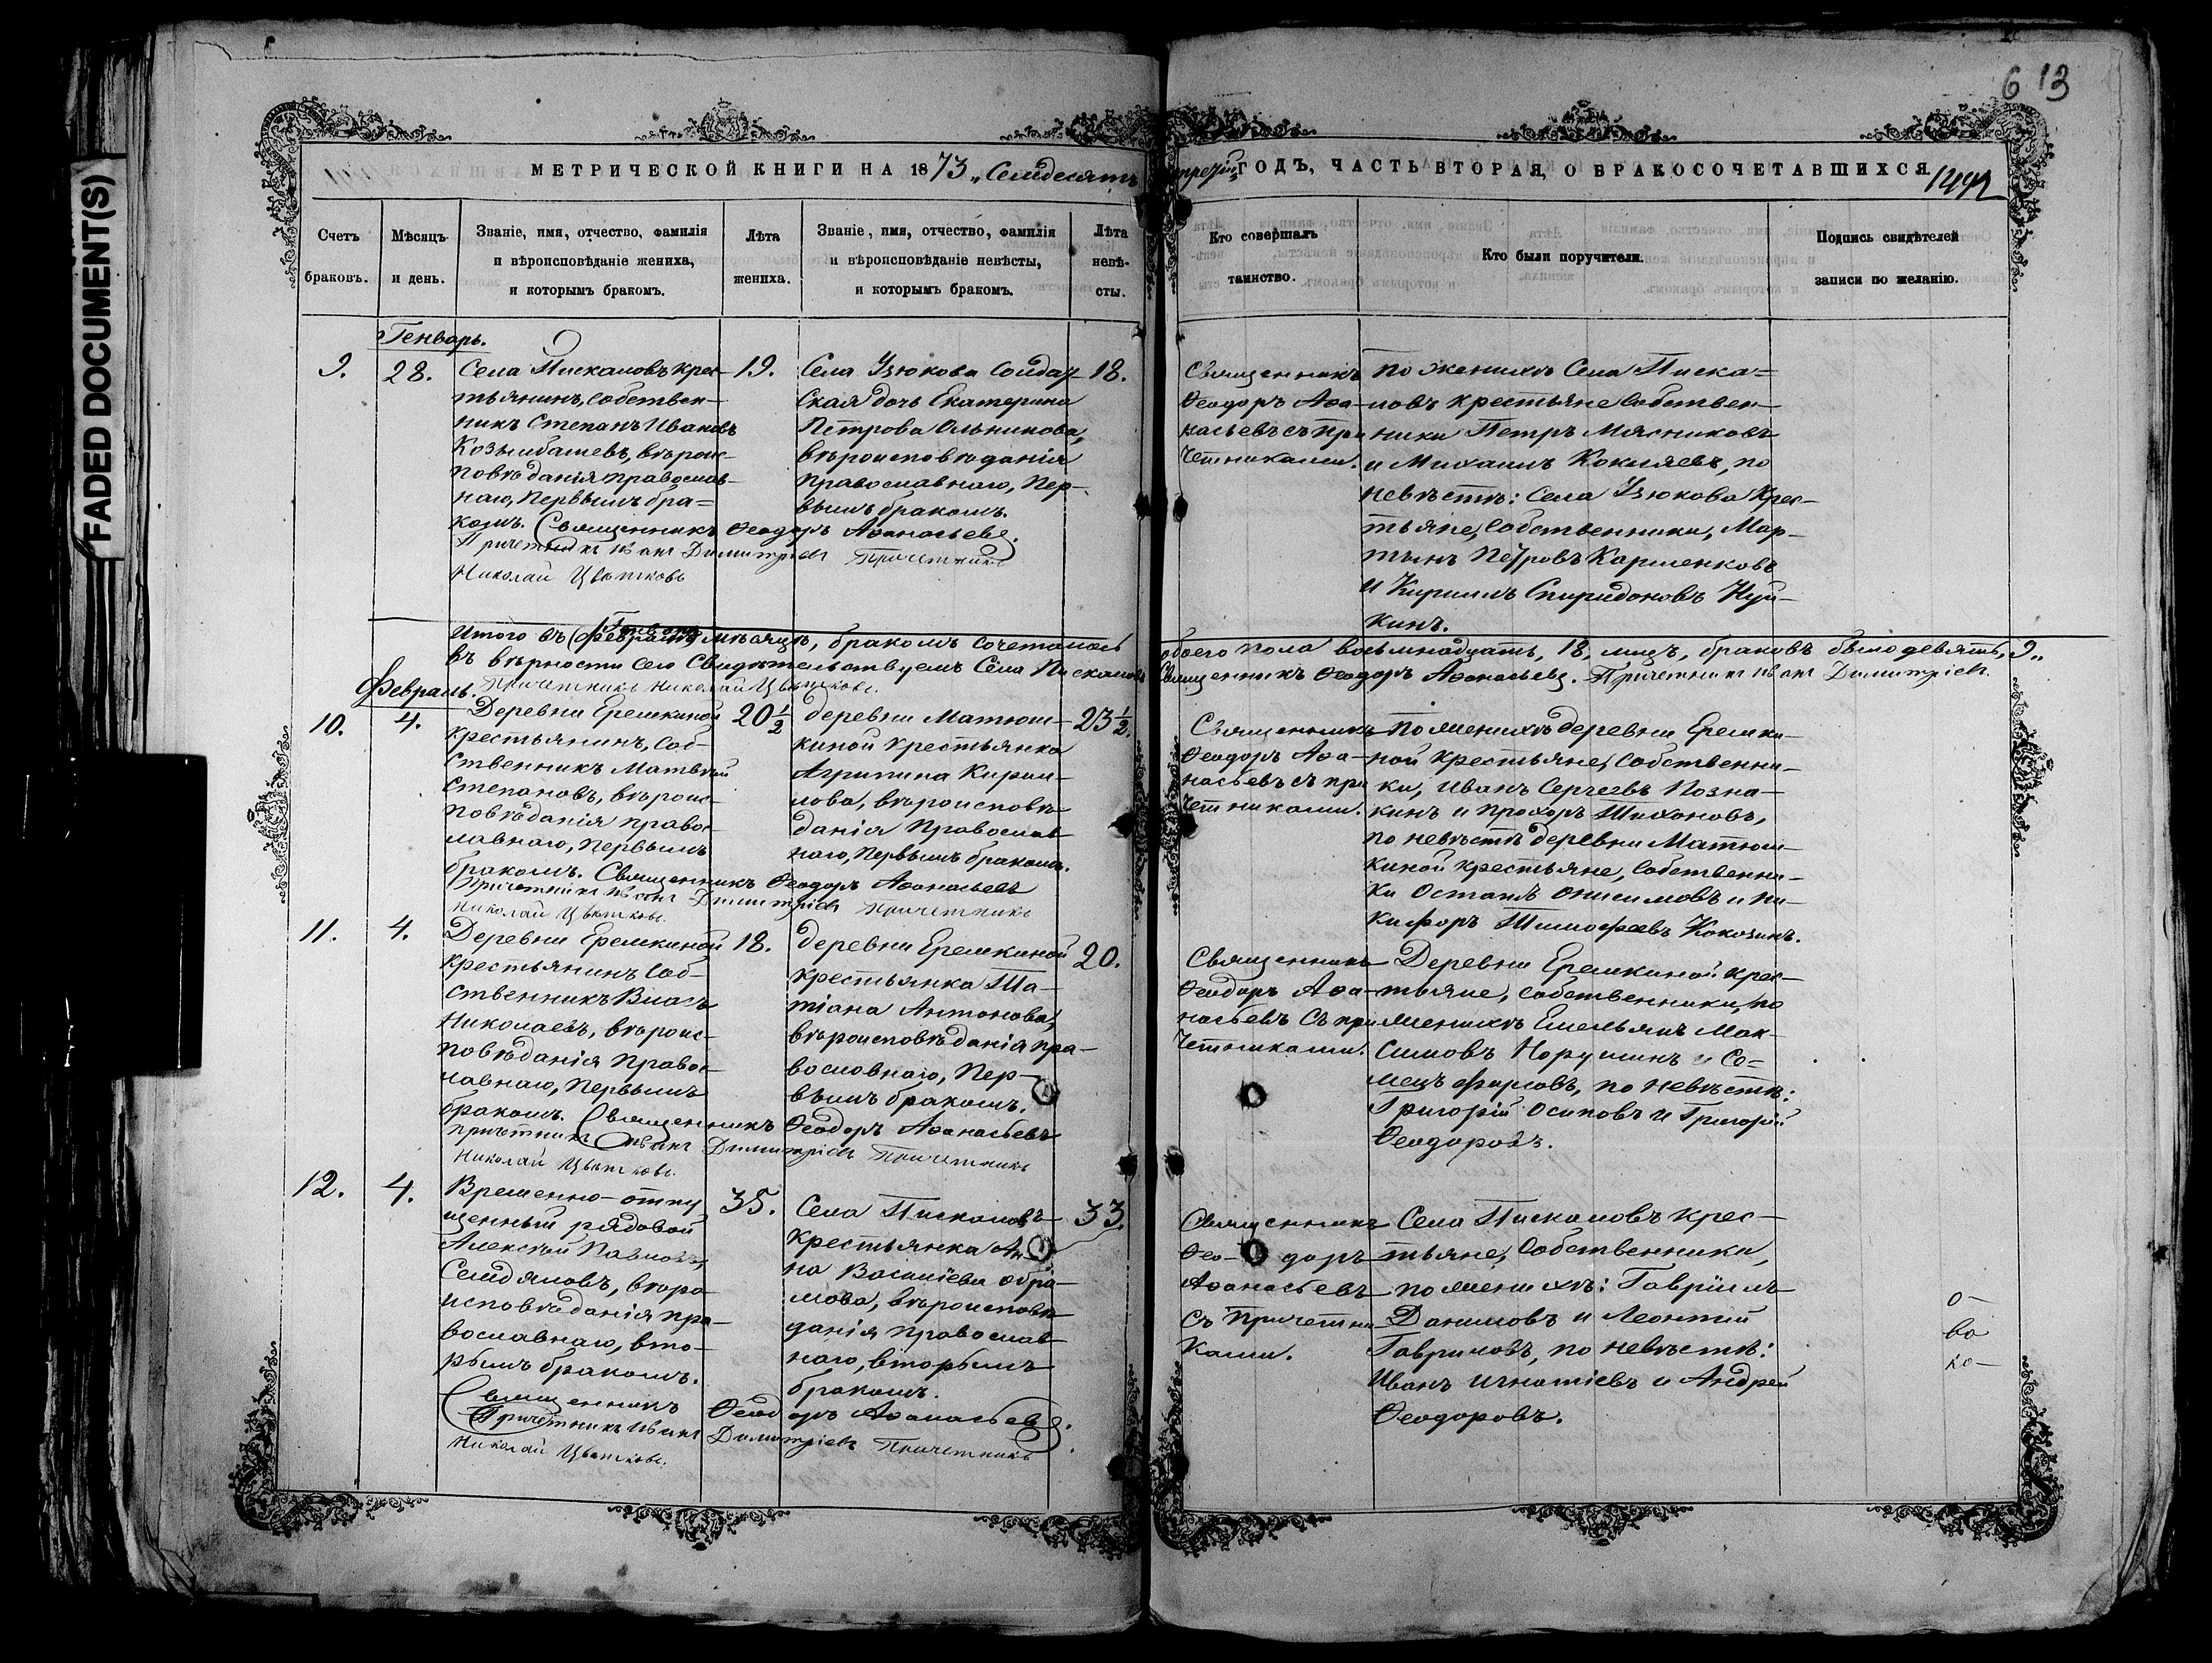 FADED DOCUMENT(S)
6 13
МЕТРИЧЕСКОЙ КНИГИ НА 1873 „Семдесятъ
третій„ ГОДЪ, ЧАСТЬ ВТОРАЯ, О БРАКОСОЧЕТАВШИХСЯ.
Счетъ браковъ.
Мѣсяцъ и день.
Званіе, имя, отчество, фамилія
и вѣроисповѣданіе жениха,
и которымъ бракомъ.
Лѣта жениха.
Званіе, имя, отчество, фамилія
и вѣроисповѣданіе невѣсты,
и которымъ бракомъ.
Лѣта невѣ-
сты.
Кто совершалъ
таинство.
Кто были поручители.
Подпись свидѣтелей
записи по желанію.
Генварь.
9.
28.
Села Пискаловъ крес-
тьянинъ, собствен-
никъ Степанъ Ивановъ
вѣроис-
повѣданія православ-
наго, первымъ бра-
комъ. Священникъ Ѳеодоръ Аѳанасьевъ.
Причетникъ Иванъ Димитріевъ Причетникъ
Николай Цвѣтковъ
19.
Села Узюкова Солдат-
ская дочь Екатерина
Петрова Ольникова,
вѣроисповѣданія
православнаго, пер-
вымъ бракомъ.
18.
Священникъ
Ѳеодоръ Аѳа-
насьевъ съ при
четниками.
По женихѣ Села Писка-
ловъ крестьяне собствен-
ники Петръ Мясниковъ
и Михаилъ Кокляевъ, по
невѣстѣ: Села Узюкова крес-
тьяне, собственники, Мар-
тынъ Петровъ Карпенковъ
и Кирилъ Спиридоновъ Нуй-
кинъ.
Итого въ (Февралѣ) мѣсяцѣ, бракомъ сочеталось
обоего пола восьмнадцать, 18, лицъ, браковъ было девять, 9„
въ вѣрности сего свидѣтельствуемъ Села Пискаловъ
Священникъ Ѳеодоръ Аѳанасьевъ. Причетникъ Иванъ Димитріевъ.
Причетникъ Николай Цвѣтковъ.
Февраль.
10.
4.
Деревни Еремкиной
крестьянинъ, соб-
ственникъ Матвѣй
Степановъ, вѣроис-
повѣданія право-
славнаго, первымъ
бракомъ. Священникъ Ѳеодоръ Аѳанасьевъ
Причетникъ Иванъ Димитріевъ Причетникъ
Николай Цвѣтковъ.
20 1/2
деревни Матюш-
киной крестьянка
Агрипина Кирил-
лова, вѣроисповѣ-
данія православ-
наго, первымъ бракомъ.
23 1/2.
Священникъ
Ѳеодоръ Аѳа-
насьевъ съ при
четниками.
По женихѣ деревни Еремки-
ной крестьяне, собственни-
ки, Иванъ Сергеевъ Позна-
кинъ и Прохоръ Тихоновъ,
по невѣстѣ деревни Матюш-
киной крестьяне, собственни-
ки Остапъ Онисимовъ и Ни-
кифоръ Тимофеевъ Кокозинъ.
11.
4.
Деревни Еремкиной
крестьянинъ соб-
ственникъ Власъ
Николаевъ, вѣроис-
повѣданія правос-
лавнаго, первымъ
бракомъ. Священникъ Ѳеодоръ Аѳанасьевъ
причетникъ Иванъ Димитріевъ Причетникъ
Николай Цвѣтковъ.
18.
деревни Еремкиной
крестьянка Та-
тіана Антонова,
вѣроисповѣданія пра-
вославнаго, пер-
вымъ бракомъ.
20.
Священникъ
Ѳеодоръ Аѳа-
насьевъ съ при
четниками.
Деревни Еремкиной крес-
тьяне, собственники, по
женихѣ Емельянъ Мак-
симовъ Норушинъ и Со-
по невѣстѣ:
Григорій Осиповъ и Григорій
Ѳеодоровъ.
12.
4.
Временно-отпу
щенный рядовой
Алексѣй Павловъ,
Семдяновъ, вѣро
исповѣданія пра-
вославнаго, вто-
рымъ бракомъ.
Священникъ Ѳеодоръ Аѳанасьевъ.
Причетникъ Иванъ Димитріевъ Причетникъ
Николай Цвѣтковъ.
35.
Села Пискаловъ
крестьянка Ан-
на Василіева Абра-
мова, вѣроисповѣ
данія православ
наго, вторымъ
бракомъ.
33.
Священникъ
Ѳео- доръ
Аѳанасьевъ
съ причетни
ками.
Села Пискаловъ крес-
тьяне, собственники,
по женихѣ: Гавріилъ
Даниловъ и Леонтій
Гавриловъ, по невѣстѣ:
Иванъ Игнатіевъ и Андрей
Ѳеодоровъ.
о-
во
ко-